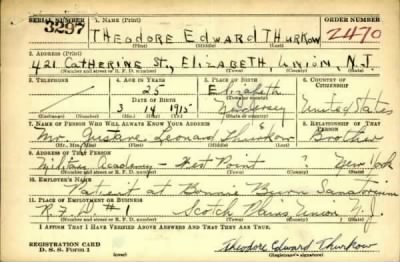 SERIAL NUMBER 1. NAME (Print) ORDER NUMBER
3297 THEODORE EDWARD THURKOW 2470
(First) (Middle) (Last)
2. ADDRESS (Print)
421 CATHERINE ST., ELIZABETH, UNION, N.J.
(Number and street or R. F. D. number) (Town) (County) (State)
3. TELEPHONE 4. AGE IN YEARS 5. PLACE OF BIRTH 6. COUNTRY OF CITIZENSHIP
25 Elizabeth
DATE OF BIRTH (Town or county)
3 14 1915 New Jersey United States
(Exchange) (Number) (Mo.) (Day) (Yr.) (State or country)
7. NAME OF PERSON WHO WILL ALWAYS KNOW YOUR ADDRESS 8. RELATIONSHIP OF THAT PERSON
Mr. Gustave Leonard Thurkow Brother
(Mr., Mrs., Miss) (First) (Middle) (Last)
9. ADDRESS OF THAT PERSON
Military Academy - West Point ? New York
(Number and street or R. F. D. number) (Town) (County) (State)
10. EMPLOYER'S NAME
Patient at Bonnie Burn Sanatorium
11. PLACE OF EMPLOYMENT OR BUSINESS
R.F.D #1 Scotch Plains Union N.J.
(Number and street or R. F. D. number) (Town) (County) (State)
I AFFIRM THAT I HAVE VERIFIED ABOVE ANSWERS AND THAT THEY ARE TRUE.
REGISTRATION CARD
D. S. S. Form 1 Theodore Edward Thurkow
(Registrant's signature)